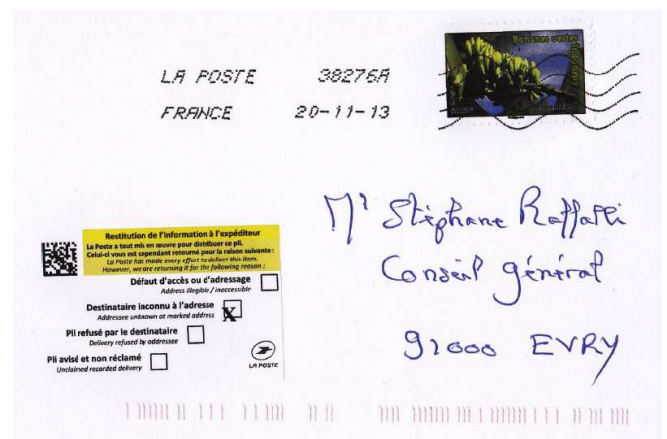 LA POSTE 38276A
FRANCE 20-11-13
Bananes vertes
Mr Stéphane Raffalli
Conseil général
91000 EVRY
Restitution de l'information à l'expéditeur
La Poste a tout mis en œuvre pour distribuer ce pli.
Celui-ci vous est cependant retourné pour la raison suivante :
La Poste has made every effort to deliver this item.
However, we are returning it for the following reason :
Défaut d'accès ou d'adressage
Address illegible / inaccessible
Destinataire inconnu à l'adresse
Addressee unknown at marked address
X
Pli refusé par le destinataire
Delivery refused by addressee
Pli avisé et non réclamé
Unclaimed recorded delivery
LA POSTE